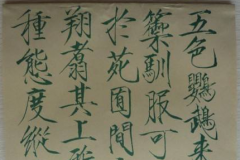 五色鸚鵡來
籞馴服可
於苑囿間
翔翥其上
種態度縱